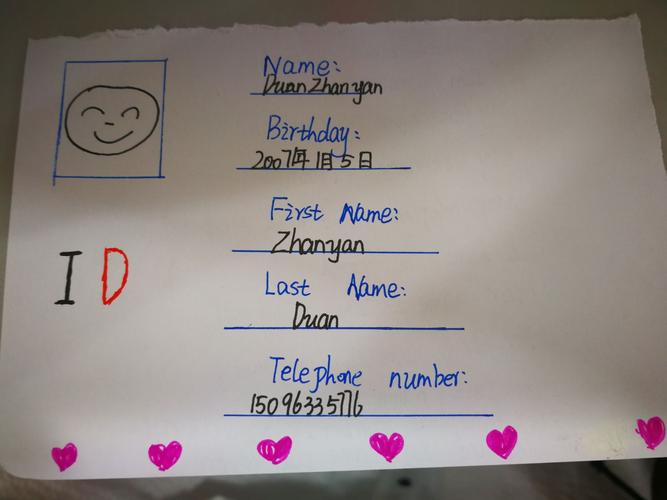 Name:
Duan Zhanyan
Birthday:
2007年1月5日
First Name:
Zhanyan
ID
Last Name:
Duan
Telephone number:
15096335776